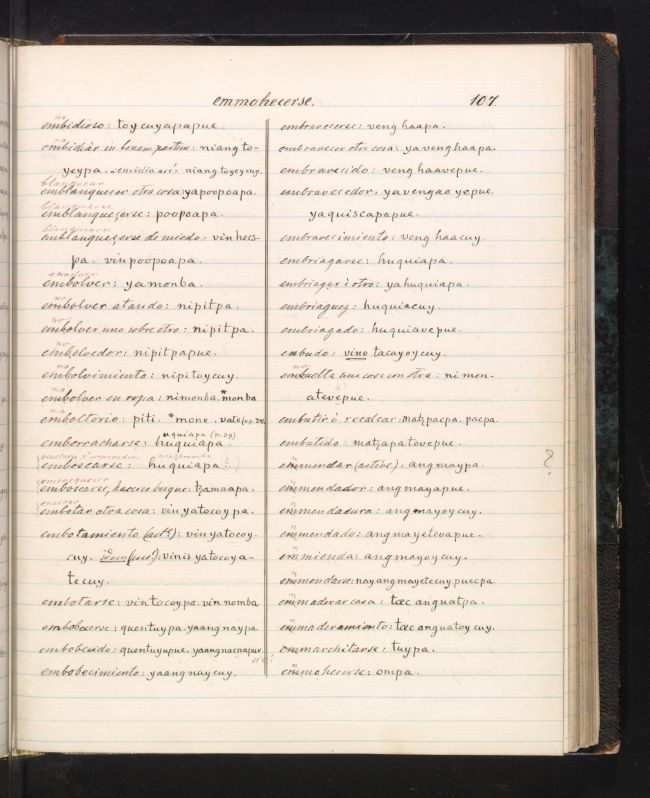 emmohecerse. 107
embidioso: toycuyapapue.
embidiar in bonam partem: niang to-
yeypa.
blanquear
emblanquecer otra cosa: yapoopoapa.
blanquearse
emblanquezerse: poopoapa.
blanquearse
emblanqueзerse de miedo: vin hecs-
pa. vin poopoapa.
embolver: yamonba.
no
embolver atando: nipitpa.
no
embolver uno sobre otro: nipitpa.
no
embolvedor: nipitpapue.
no
embolvimiento: nipitoycuy.
no
embolver en ropa: nimonba. *monba
no
emboltorio: piti. *mone. vate
uquiapa (p. 39)
emborracharse: huquiapa.
emboscarse: huquiapa (?)
emboscarse, hacerse bosque: tzamaapa.
embotar otra cosa: vin yatocoypa.
embotamiento (act.): vin yatocoy-
cuy. idem: vinis yatocoya-
tecuy.
embotarse: vin tocoypa. vin nomba
embobecerse: quentuypa. yaangnaypa.
embobecido: quentuyupue. yaangnacnapue.
embobecimiento: yaangnaycuy.
embravecerse: venghaapa.
embravecer otra cosa: yavenghaapa.
embravecido: venghaavepue.
embravecedor: yavengaoyepue.
yaquiscapapue.
embravecimiento: venghaacuy.
embriagarse: huquiapa.
embriagar á otro: yahuquiapa.
embriaguez: huquiacuy.
embriagado: huquiavepue.
embudo: vino tacayoycuy.
embuelta una cosa con otra: nimon-
atevepue.
embutir ò recalcar: matzpacpa. pacpa.
embutido: matzapatevepue.
emmendar (activè): angmaypa. ?
emmendador: angmayapue.
emmendadura: angmayoycuy.
emmendado: angmayetevapue.
emmienda: angmayoycuy.
emmendarse: nayangmayetecuy puecpa.
emmaderar casa: tæc anguatpa.
emmaderamiento: tæc anguatoycuy.
emmarchitarse: tuypa.
emmohecerse: ompa.